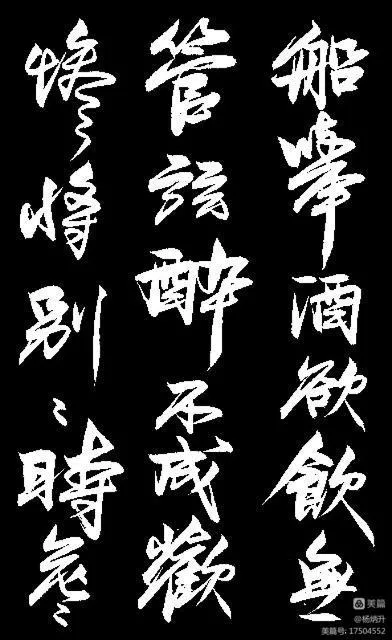 船舉酒欲飲無
管弦醉不成歡
慘將別〻時茫〻
美篇
@杨炳升
美篇号: 17504552